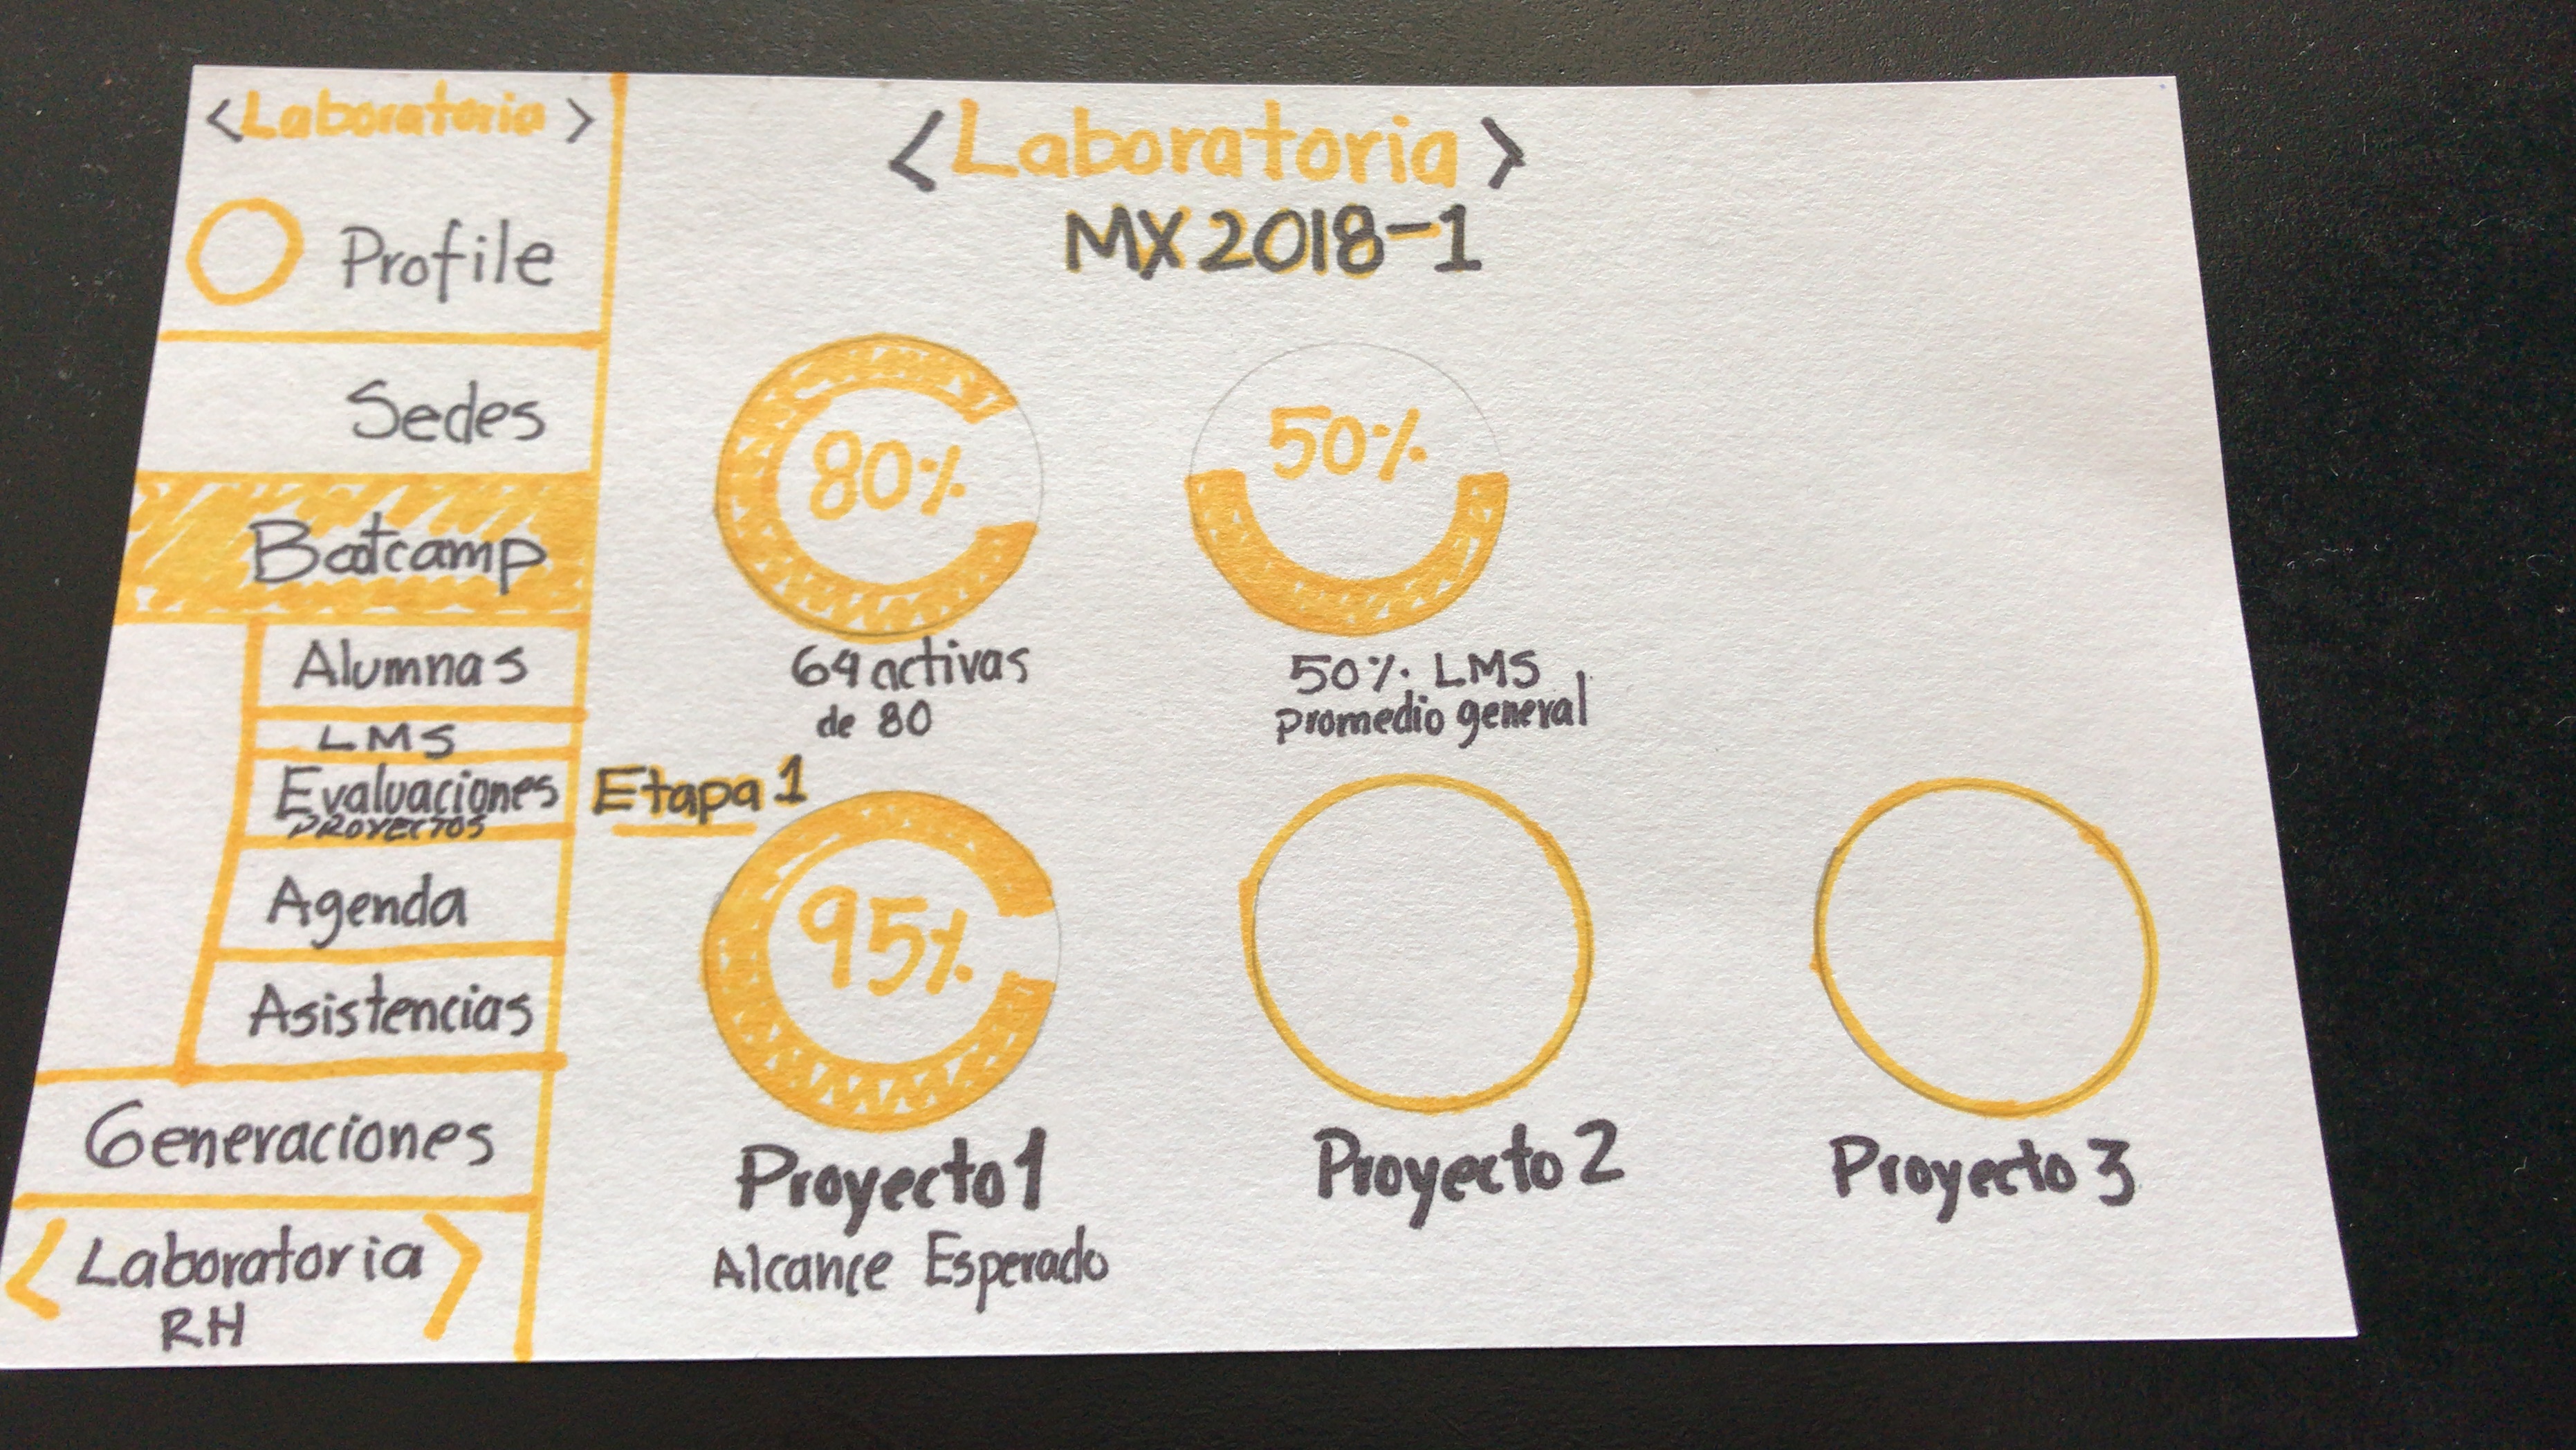 <Laboratoria>
Profile
Sedes
Bootcamp
Alumnas
LMS
Evaluaciones
PROYECTOS
Agenda
Asistencias
Generaciones
<Laboratoria>
RH
<Laboratoria>
MX2018-1
80%
64 activas
de 80
50%
50% LMS
promedio general
Etapa 1
95%
Proyecto 1
Alcance Esperado
Proyecto 2
Proyecto 3